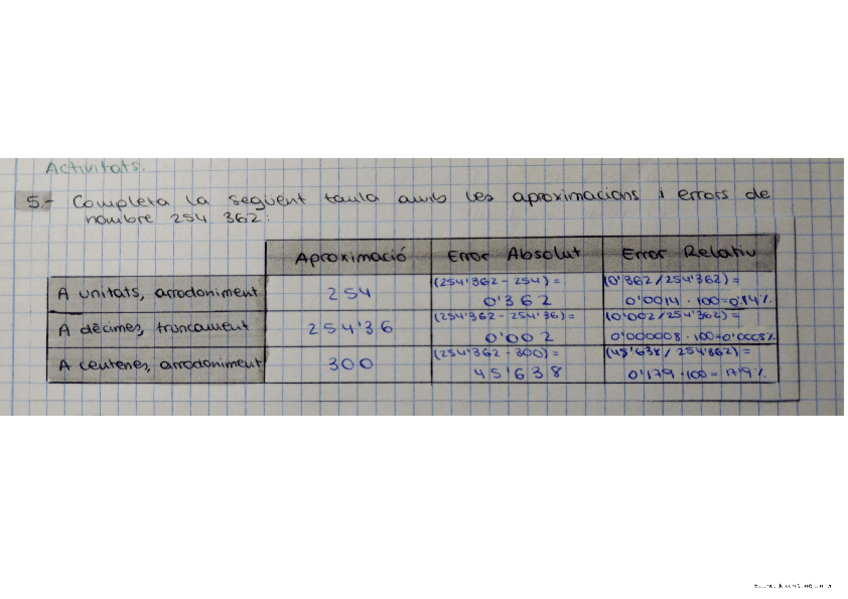 Activitats.
5.- Completa la següent taula amb les aproximacions i errors de
nombre 254'362:
Aproximació Error Absolut Error Relatiu
A unitats, arrodoniment 254 (254'362 - 254) = 0'362 (0'362/254'362) = 0'0014 · 100=0'14%
A dècimes, truncament 254'36 (254'362 - 254'36) = 0'002 (0'002/254'362) = 0'000008 · 100=0'0008%
A centenes, arrodoniment 300 (254'362 - 300) = 45'638 (45'638 / 254'362) = 0'179 · 100 = 17'9%